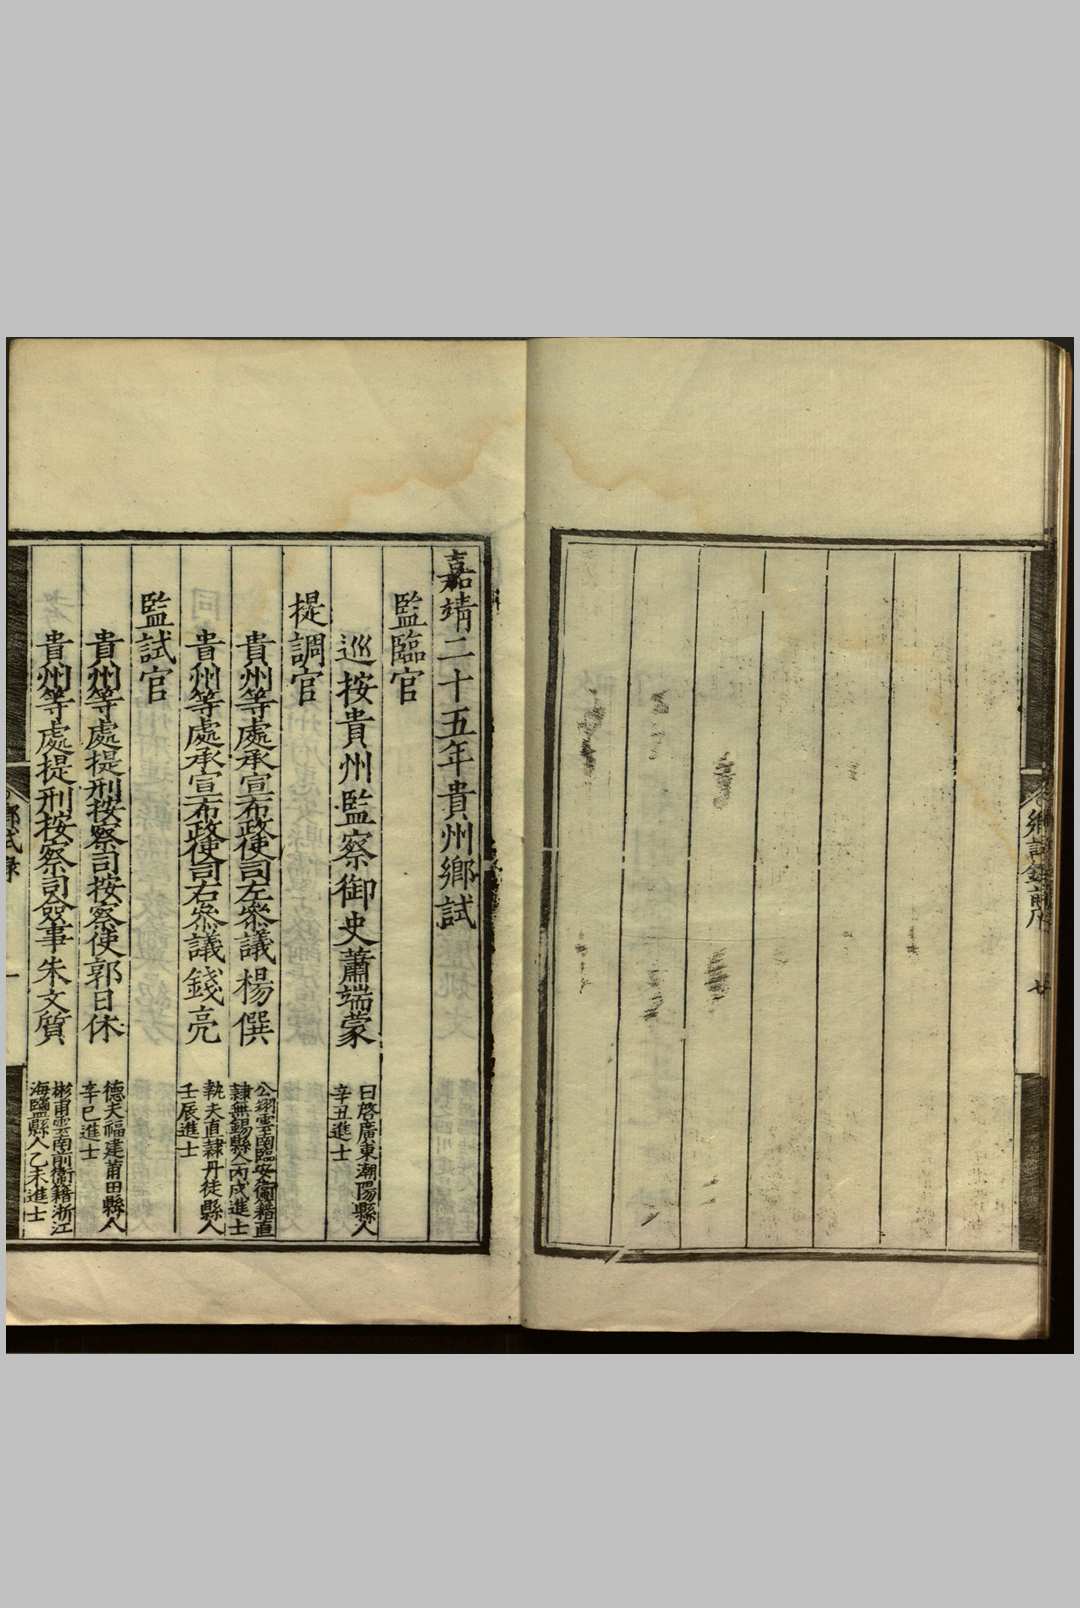 鄉試錄前序
嘉靖二十五年貴州鄉試
監臨官
巡按貴州監察御史蕭端蒙
曰啓廣東潮陽縣人
辛丑進士
提調官
貴州等處承宣布政使司左叅議楊僎
公翊雲南臨安衞籍直
隸無錫縣人丙戌進士
貴州等處承宣布政使司右叅議錢亮
執夫直隸丹徒縣人
壬辰進士
監試官
貴州等處提刑按察司按察使郭日休
德夫福建莆田縣人
辛巳進士
貴州等處提刑按察司僉事朱文質
彬甫雲南前衞籍浙江
海鹽縣人乙未進士
鄉試錄
一